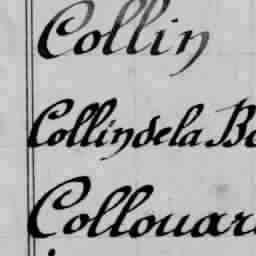 Collin
Collin de la B
Collouar